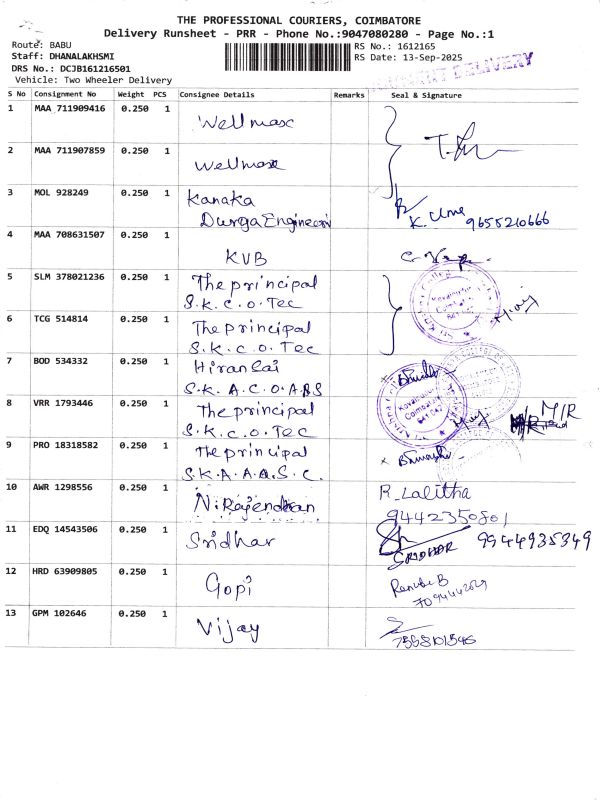 THE PROFESSIONAL COURIERS, COIMBATORE
Delivery Runsheet - PRR - Phone No.:9047080280 - Page No.:1
Route: BABU
RS No.: 1612165
Staff: DHANALAKHSMI
RS Date: 13-Sep-2025
DRS No.: DCJB161216501
Vehicle: Two Wheeler Delivery
DELIVERY
S No Consignment No Weight PCS Consignee Details Remarks Seal & Signature
1 MAA 711909416 0.250 1 Wellmax
2 MAA 711907859 0.250 1 Wellmax
3 MOL 928249 0.250 1 Kanaka
Durga Engineeri
K. 9655210666
4 MAA 708631507 0.250 1 KVB
5 SLM 378021236 0.250 1 The principal
S.K.C.O.Tec
6 TCG 514814 0.250 1 The principal
S.K.C.O.Tec
7 BOD 534332 0.250 1 Hiran Sai
S.K.A.C.O.A.B.S
8 VRR 1793446 0.250 1 The principal
S.K.C.O.Tec
M/R
9 PRO 18318582 0.250 1 The principal
S.K.A.A.A.S.C.
10 AWR 1298556 0.250 1 N.Rajendran
R. Lalitha
9442350801
11 EDQ 14543506 0.250 1 Sridhar
SRIDHAR 9944935349
12 HRD 63909805 0.250 1 Gopi
13 GPM 102646 0.250 1 Vijay